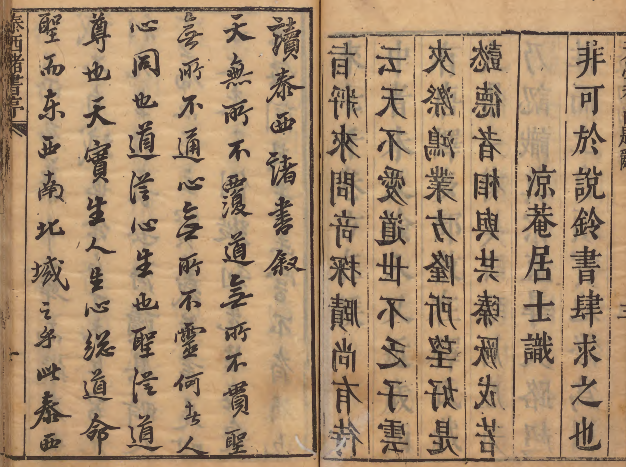 非可於說鈴書肆求之也
涼菴居士識
懿德者相與共臻厥成若
夾漈鴻業方隆所望好是
云天不愛道世不乏子雲
者將來問奇探賾尚有待
讀泰西諸書叙
天無所不覆道無所不貫聖
無所不通心無所不靈何者人
心同也道從心生也聖從道
尊也天實生人生心總道命
聖而東西南北域之乎此泰西
泰西諸書序